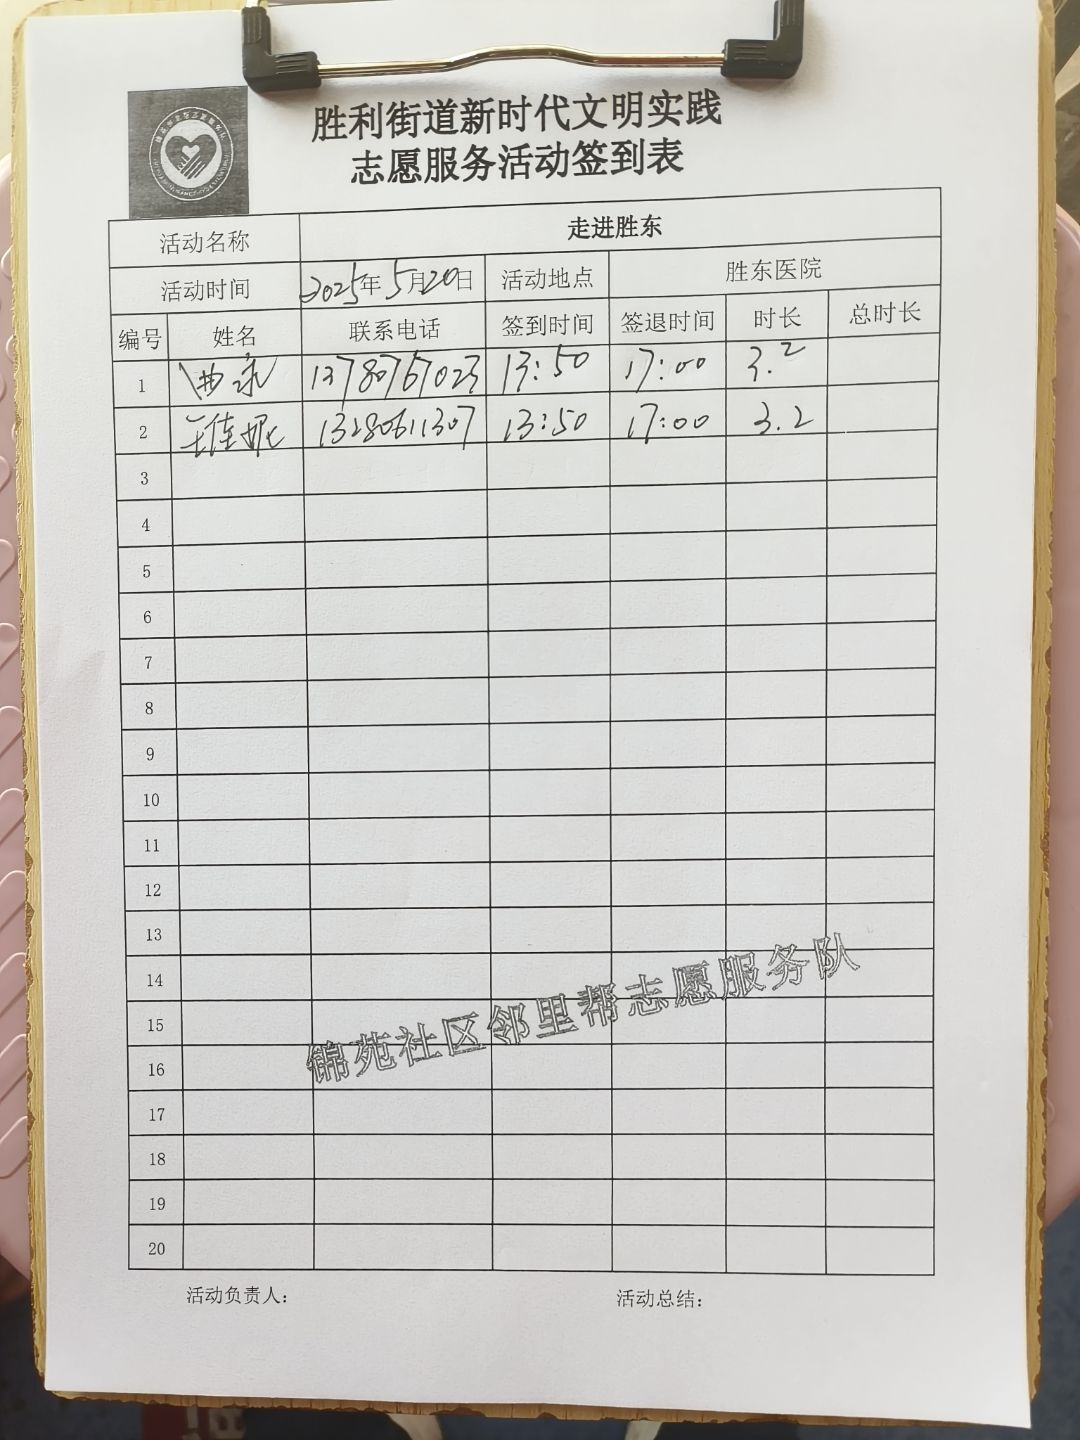 胜利街道新时代文明实践
志愿服务活动签到表
活动名称 走进胜东
活动时间 2025年5月20日 活动地点 胜东医院
编号 姓名 联系电话 签到时间 签退时间 时长 总时长
1 13780767023 13:50 17:00 3.2
2 王佳妮 13280611307 13:50 17:00 3.2
3
4
5
6
7
8
9
10
11
12
13
14
15
16
17
18
19
20
锦苑社区邻里帮志愿服务队
活动负责人: 活动总结: